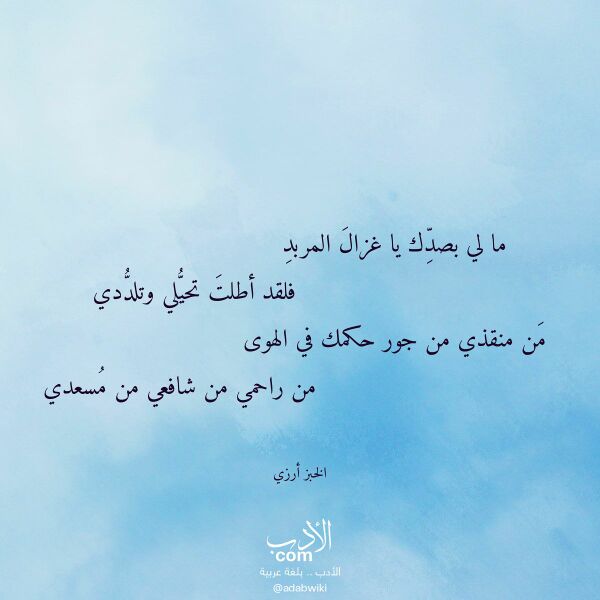 ما لي بصدِّك يا غزالَ المربدِ
فلقد أطلتَ تحيُّلي وتلدُّدي
مَن منقذي من جور حكمك في الهوى
من راحمي من شافعي من مُسعدي
الخبز أرزي
الأدب
com
الأدب .. بلغة عربية
@adabwiki